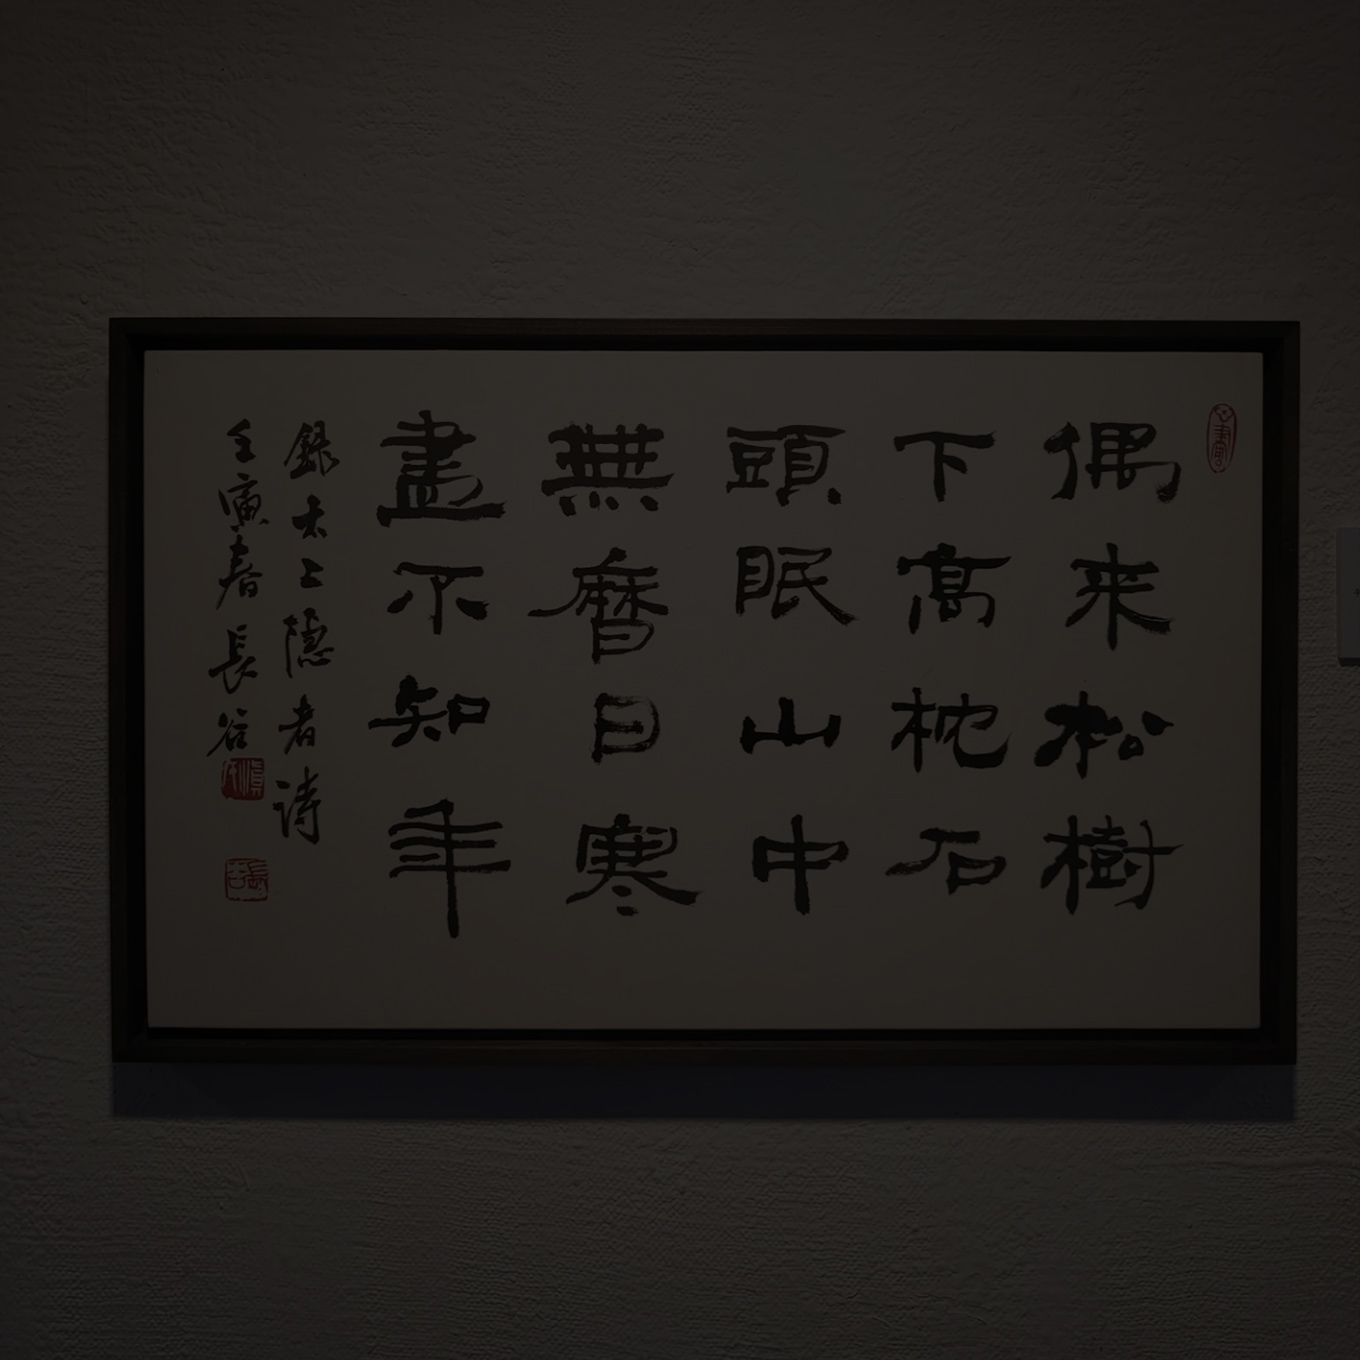 偶来松樹
下高枕石
頭眠山中
無曆日寒
盡不知年
錄太上隱者詩
壬寅春長谷